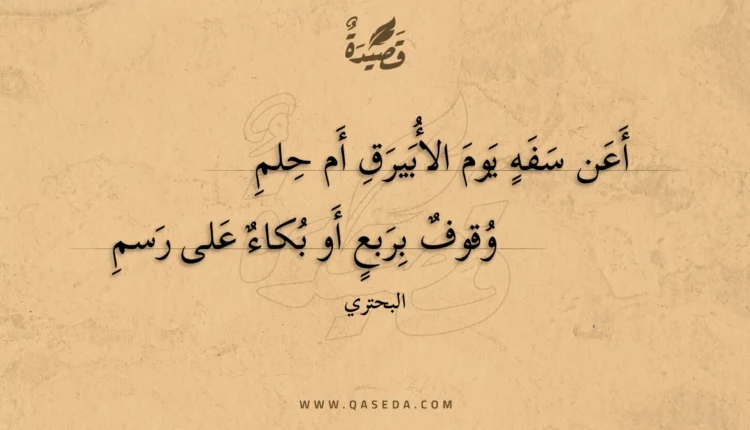 قَصِيْدَةٌ
أَعَن سَفَهٍ يَومَ الأُبَيرَقِ أَم حِلمِ
وُقوفٌ بِرَبعٍ أَو بُكاءٌ عَلى رَسمِ
البحتري
WWW.QASEDA.COM